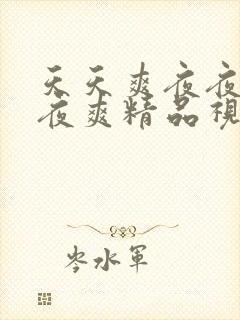 天天爽夜夜
夜爽精品視
岑水軍